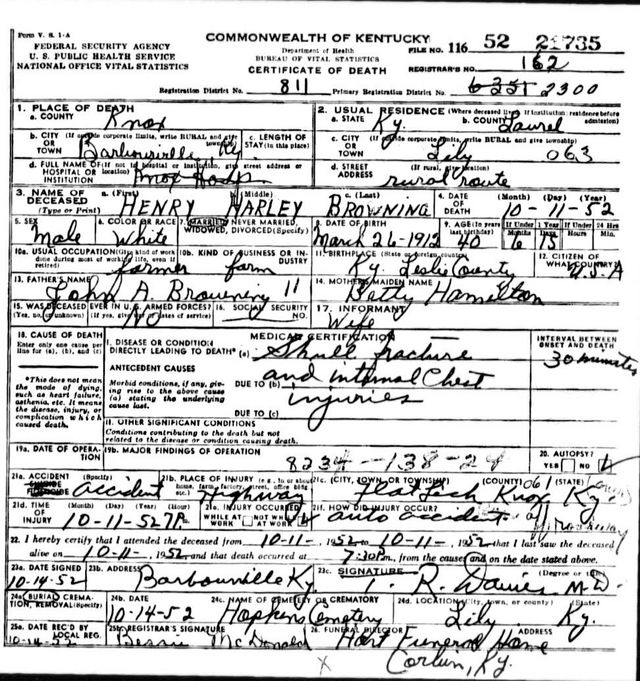 Form V. S. 1-A
COMMONWEALTH OF KENTUCKY
FEDERAL SECURITY AGENCY
U. S. PUBLIC HEALTH SERVICE
NATIONAL OFFICE VITAL STATISTICS
Department of Health
BUREAU OF VITAL STATISTICS
CERTIFICATE OF DEATH
FILE NO. 116 52 21735
REGISTRAR'S NO. 162
Registration District No. 811 Primary Registration District No. 6351 2300
1. PLACE OF DEATH
a. COUNTY Knox
2. USUAL RESIDENCE (Where deceased lived. If institution: residence before admission)
a. STATE Ky. b. COUNTY Laurel
b. CITY (If outside corporate limits, write RURAL and give
OR TOWN Barbourville Ky.
c. LENGTH OF STAY (in this place)
c. CITY (If outside corporate limits, write RURAL and give township)
OR TOWN Lily 063
d. FULL NAME OF (If not in hospital or institution, give street address or location)
HOSPITAL OR INSTITUTION Knox Hosp
d. STREET ADDRESS (If rural, give location)
rural route
3. NAME OF DECEASED (Type or Print)
a. (First) (Middle) c. (Last)
HENRY HARLEY BROWNING
4. DATE OF DEATH (Month) (Day) (Year)
10-11-52
5. SEX Male
6. COLOR OR RACE White
7. MARRIED, NEVER MARRIED, WIDOWED, DIVORCED (Specify)
8. DATE OF BIRTH March 26-1912
9. AGE (In years last birthday) 40
If Under 1 Year If Under 24 Hrs
Months Days Hours Min.
6 15
10a. USUAL OCCUPATION (Give kind of work done during most of working life, even if retired) farmer
10b. KIND OF BUSINESS OR INDUSTRY farm
11. BIRTHPLACE (State or foreign country)
Ky. Leslie County
12. CITIZEN OF WHAT COUNTRY? U.S.A
13. FATHER'S NAME
John A Browning 11
14. MOTHERS MAIDEN NAME
Betty Hamilton
15. WAS DECEASED EVER IN U.S. ARMED FORCES?
(Yes, no, or unknown) (If yes, give war or dates of service)
No
16. SOCIAL SECURITY NO.
17. INFORMANT
Wife
18. CAUSE OF DEATH
Enter only one cause per line for (a), (b), and (c)
MEDICAL CERTIFICATION
I. DISEASE OR CONDITION DIRECTLY LEADING TO DEATH* (a) Skull fracture
INTERVAL BETWEEN ONSET AND DEATH
30 minutes
*This does not mean the mode of dying, such as heart failure, asthenia, etc. It means the disease, injury, or complication which caused death.
ANTECEDENT CAUSES
Morbid conditions, if any, giving rise to the above cause (a) stating the underlying cause last.
DUE TO (b) and internal Chest
DUE TO (c) injuries
II. OTHER SIGNIFICANT CONDITIONS
Conditions contributing to the death but not related to the disease or condition causing death.
19a. DATE OF OPERATION
19b. MAJOR FINDINGS OF OPERATION
8234-138-24
20. AUTOPSY?
YES NO
21a. ACCIDENT (Specify) SUICIDE HOMICIDE
accident
21b. PLACE OF INJURY (e.g., in or about home, farm, factory, street, office bldg etc.) Highway
21c. (CITY, TOWN, OR TOWNSHIP) (COUNTY) 061 (STATE)
Knox Ky.
21d. TIME OF INJURY (Month) (Day) (Year) (Hour)
10-11-52 7P.
21e. INJURY OCCURRED
WHILE AT WORK NOT WHILE AT WORK
21f. HOW DID INJURY OCCUR?
auto accident
22. I hereby certify that I attended the deceased from 10-11-, 1952 to 10-11-, 1952 that I last saw the deceased
alive on 10-11-, 1952 and that death occurred at 7:30 P.m., from the causes and on the date stated above.
23a DATE SIGNED
10-14-52
23b. ADDRESS
Barbourville Ky.
23c. SIGNATURE (Degree or title)
R. Davies M.D.
24a BURIAL, CREMATION, REMOVAL (Specify)
24b. DATE
10-14-52
24c. NAME OF CEMETERY OR CREMATORY
Hopkins Cemetery
24d. LOCATION (City, town, or county) (State)
Lily Ky.
25a. DATE REC'D BY LOCAL REG.
10-14-52
25b. REGISTRAR'S SIGNATURE
Bessie McDonald
26. FUNERAL DIRECTOR ADDRESS
Hart Funeral Home
Corbin, Ky.
X